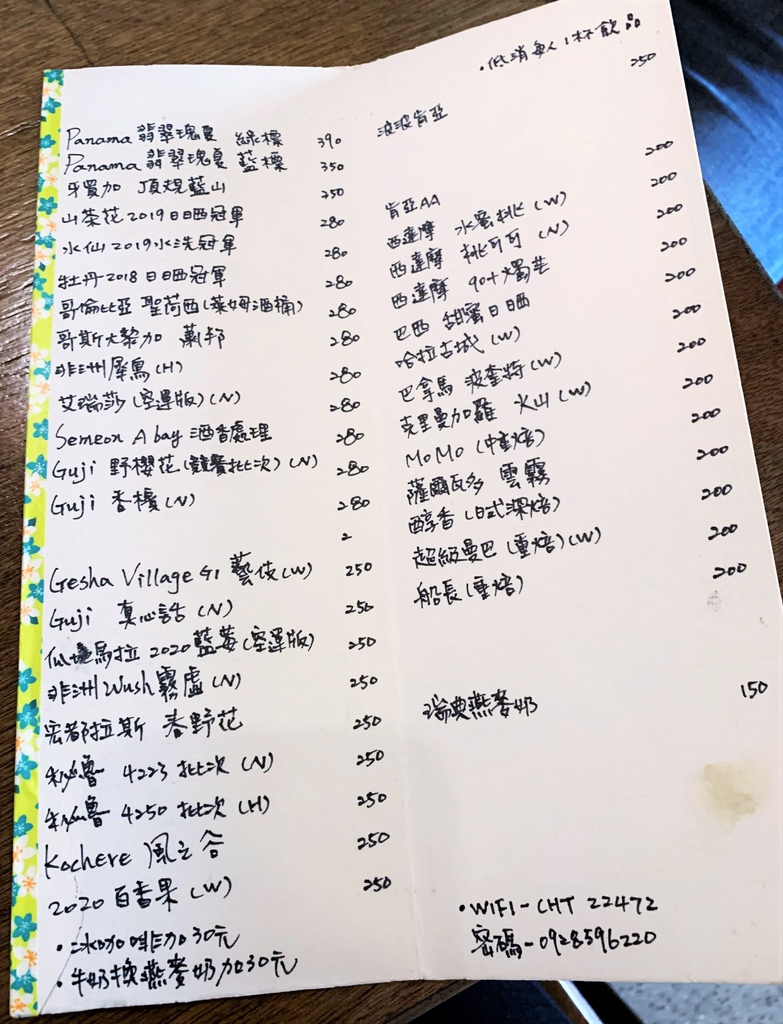 Panama 翡翠瑰夏 綠標 390
Panama 翡翠瑰夏 藍標 350
牙買加 頂規藍山 350
山茶花2019日晒冠軍 280
水仙2019水洗冠軍 280
牡丹2018日晒冠軍 280
哥倫比亞 聖荷西(萊姆酒桶) 280
哥斯大黎加 蕭邦 280
非洲犀鳥(H) 280
艾瑞莎(空運版)(N) 280
Semeon Abay 酒香處理 280
Guji 野櫻花(競賽批次)(N) 280
Guji 香檳(N) 280
2
Gesha Village G1 藝伎(W) 250
Guji 真心話(N) 250
瓜地馬拉 2020藍莓(空運版) 250
非洲Wush霧盧(N) 250
宏都拉斯 春野花 250
秘魯 4223批次(N) 250
秘魯 4250批次(H) 250
Kochere 風之谷 250
2020百香果(W) 250
•冰咖啡加30元
•牛奶換燕麥奶加30元
•低消每人1杯飲品
波波肯亞 250
肯亞AA 200
西達摩 水蜜桃(W) 200
西達摩 桃可可(N) 200
西達摩 90+燭芒 200
巴西 甜蜜日晒 200
哈拉古城(W) 200
巴拿馬 波奎特(W) 200
克里曼加羅 火山(W) 200
MoMo(中重焙) 200
薩爾瓦多 雲霧 200
醇香(日式深焙) 200
超級曼巴(重焙)(W) 200
船長(重焙) 200
瑞典燕麥奶 150
•WIFI-CHT 22472
密碼-0928596220